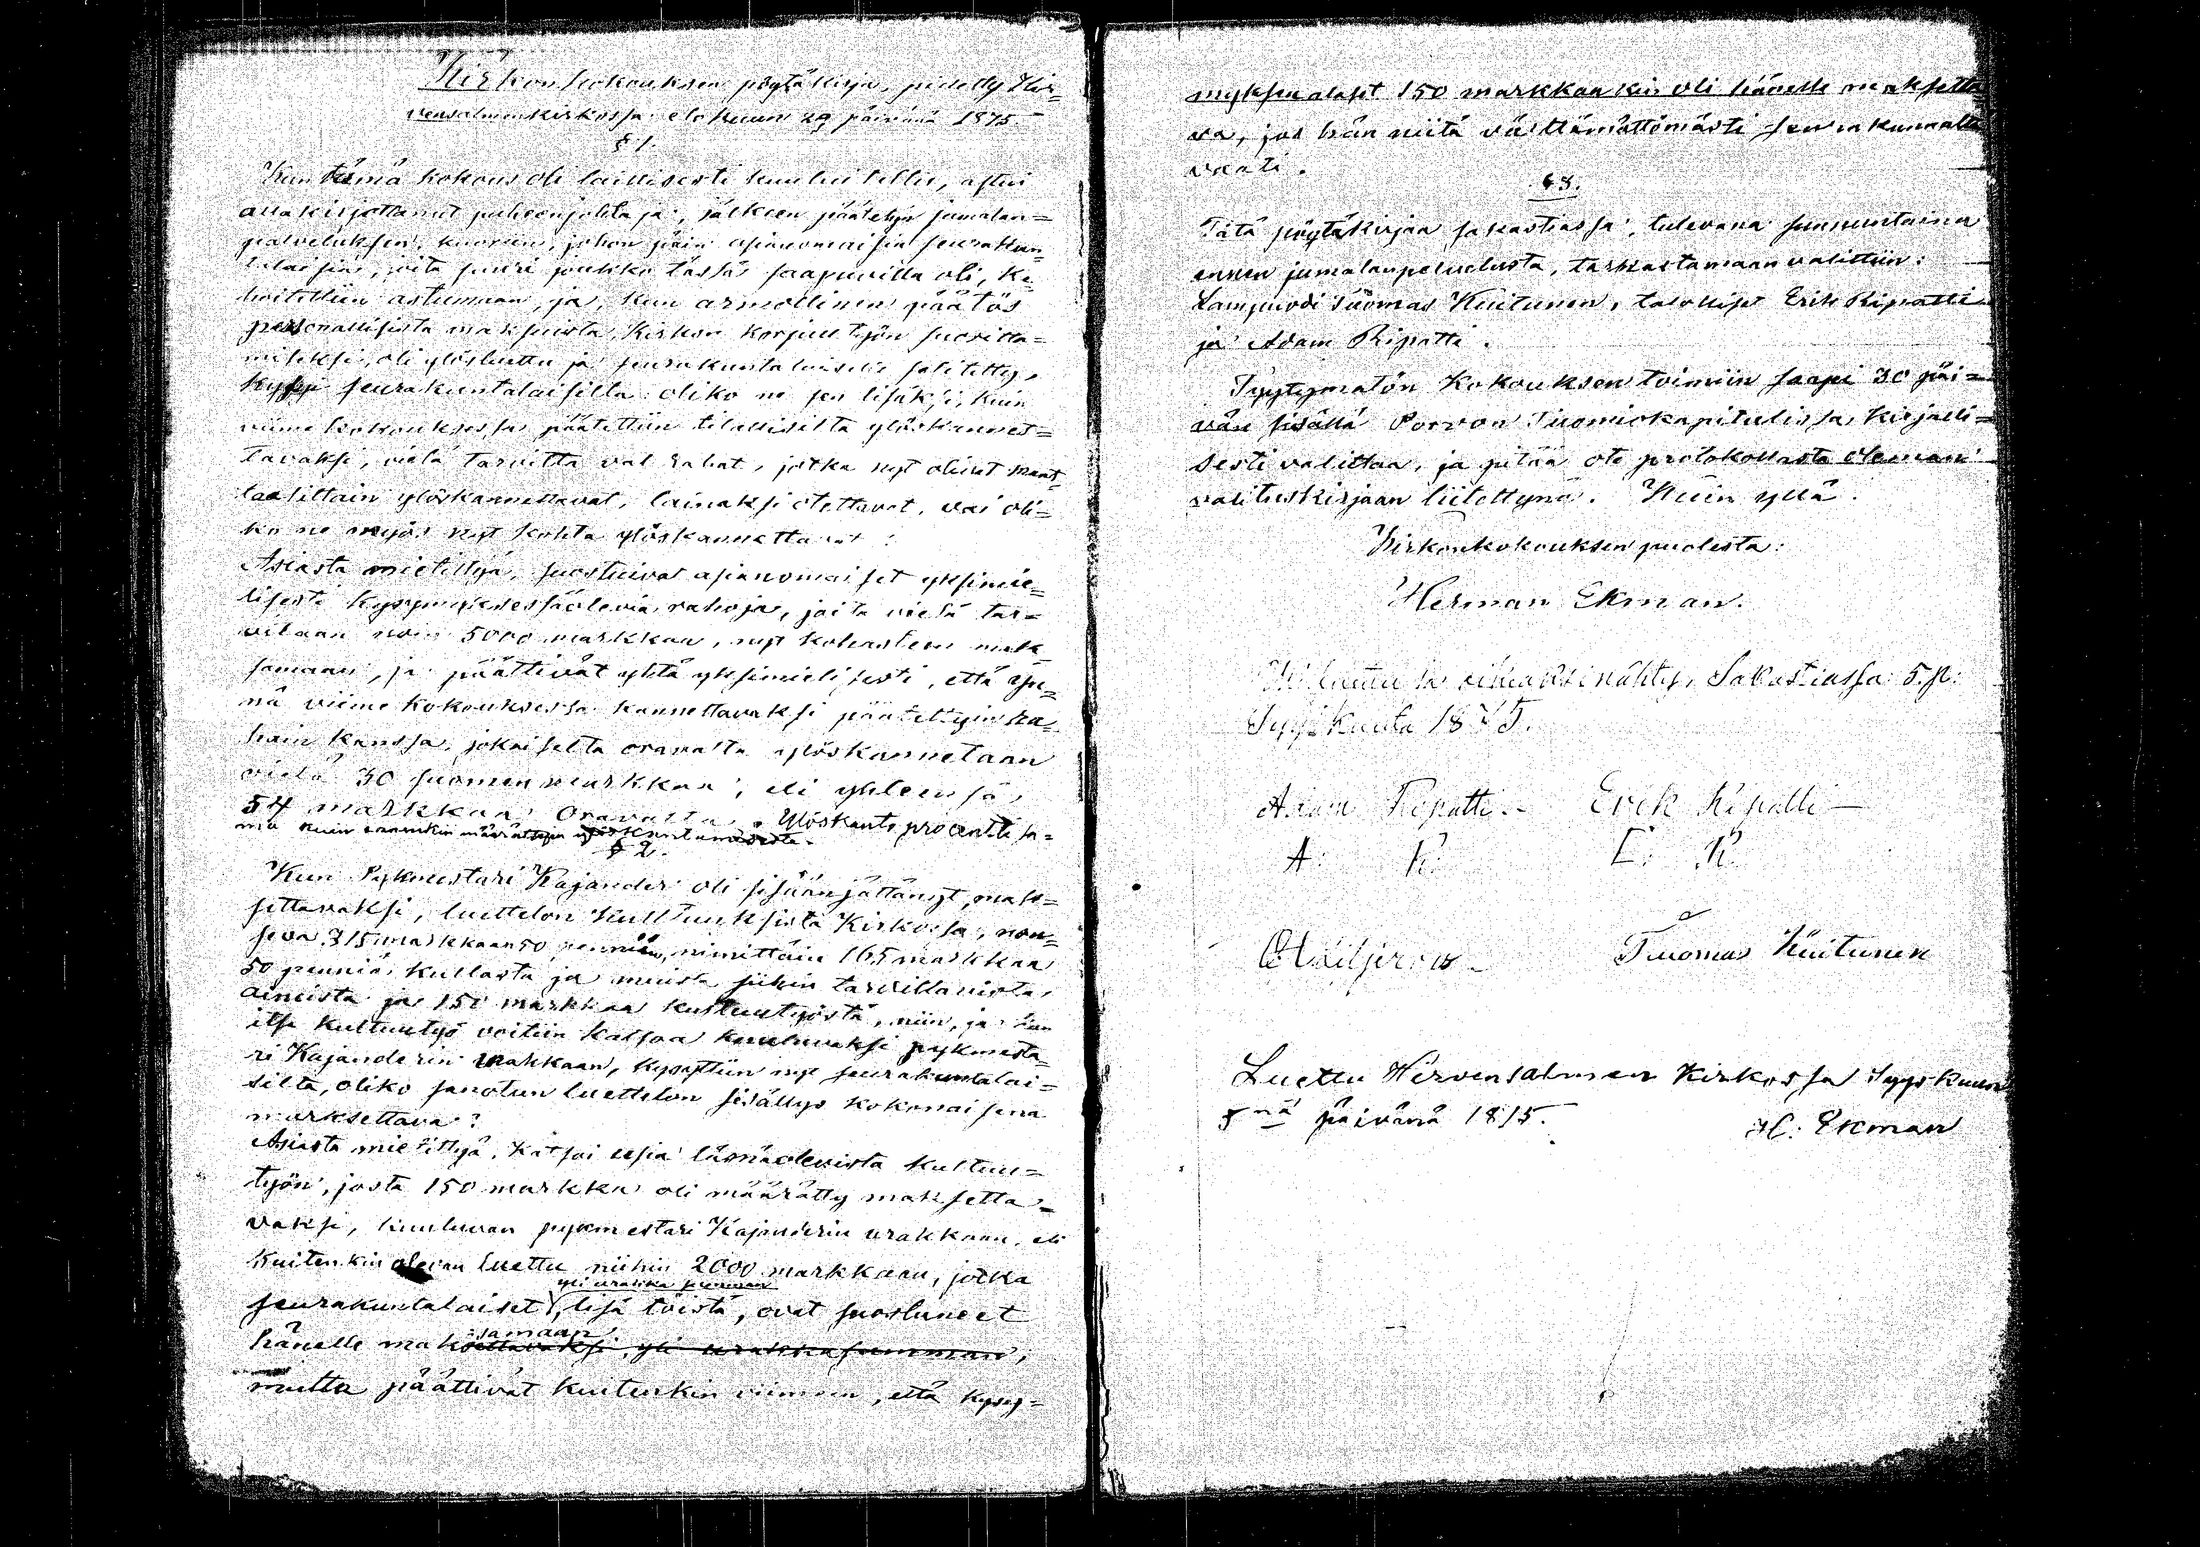 Kirkonkokouksen pöytäkirja, pidetty Hir=
vensalmenkirkossa elokuun 29 päivänä 1875.
§ 1.
Kun tämä kokous oli laillisesti kuulutettu, astui
allakirjottanut puheenjohtaja, jälkeen päätetyn jumalan=
palveluksen, kuoriin, johon päin asianomaisia seurakun=
talaisia, joita suuri joukko tässä saapuvilla oli, ke=
hoitettiin astumaan, ja, kun armollinen päätös
personallisista maksuista Kirkon korjuu työn suoritta=
miseksi, oli ylösluettu ja seurakuntalaisille selitetty,
kysyi seurakuntalaisilta oliko ne sen lisäksi, kuin
viime kokouksessa päätettiin tilallisilta ylöskannet=
tavaksi, vielä tarvittavat rahat, jotka nyt olivat mant=
taalittain ylöskannettavat, lainaksi otettavat, vai oli=
ko ne myös nyt kohta ylöskannettavat?
Asiasta mietittyä, suostuivat asianomaiset yksimie=
lisesti kysymyksessäolevia rahoja, joita vielä tar=
vitaan noin 5000 markkaa, nyt kohasten mak=
samaan, ja päättivät yhtä yksimielisesti, että yn=
nä viime kokouksessa kannettavaksi päätettyin ra=
hain kanssa, jokaiselta oravalta ylöskannetaan
vielä 30 suomen markkaa, eli yhteensä,
54 markkaa Oravalta. Ylöskanto procentti sa=
ma kuin ennenkin määrättyin ylöskantamisesta.
§ 2.
Kun Rykmestari Kajander oli sisäänjättänyt, mak=
settavaksi, luettelon kultuuksista Kirkossa, nou=
seva 315 markkaan 50 penniin, nimittäin 165 markkaa
50 penniä kullasta ja muista siihin tarvittavista
aineista ja 150 markkaa kultuutyöstä, niin, ja kun
itse kultuutyö voitiin katsoa kuuluvaksi pykmesta=
ri Kajanderin urakkaan, kysyttiin nyt seurakuntalai=
silta, oliko sanotun luettelon sisällys kokonaisena
maksettava?
Asiasta mietittyä, katsoi usia läsnäolevista kultuu=
työn, josta 150 markka oli määrätty maksetta=
vaksi, kuuluvan pykmestari Kajanderin urakkaan, eli
kuitenkin olevan luettu niihin 2000 markkaan, jotka
yli urakka summan
seurakuntalaiset, lisä töistä, ovat suostuneet
samaan
hänelle maksettavaksi, yli urakkasumman,
mutta päättivät kuitenkin viimein, että kysy=
myksenalaset 150 markkaakin oli hänelle maksetta
va, jos hän niitä välttämättömästi seurakunnalta
vaati.
§ 3.
Tätä pöytäkirjaa sakastiassa, tulevana sunnuntaina
ennen jumalanpalvelusta, tarkastamaan valittiin:
Lampuodi Tuomas Kuitunen, talolliset Erik Ripatti
ja Adam Ripatti.
Tyytymätön Kokouksen toimiin saapi 30 päi=
vän sisällä Porvon Tuomiokapitulissa, kirjalli=
sesti valittaa, ja pitää ote protokollasta oleman
valituskirjaan liitettynä. Kuin yllä.
Kirkonkokouksen puolesta:
Herman Ekman.
Ylösluettu ja oikiaksi nähty, Sakastiassa 5.p.
Syyskuuta 1875.
Adam Ripatti Erik Ripatti
A. R. E. R.
Tuomas Kuitunen
Luettu Hirvensalmen Kirkossa Syyskuun
5nä päivänä 1875.
H. Ekman